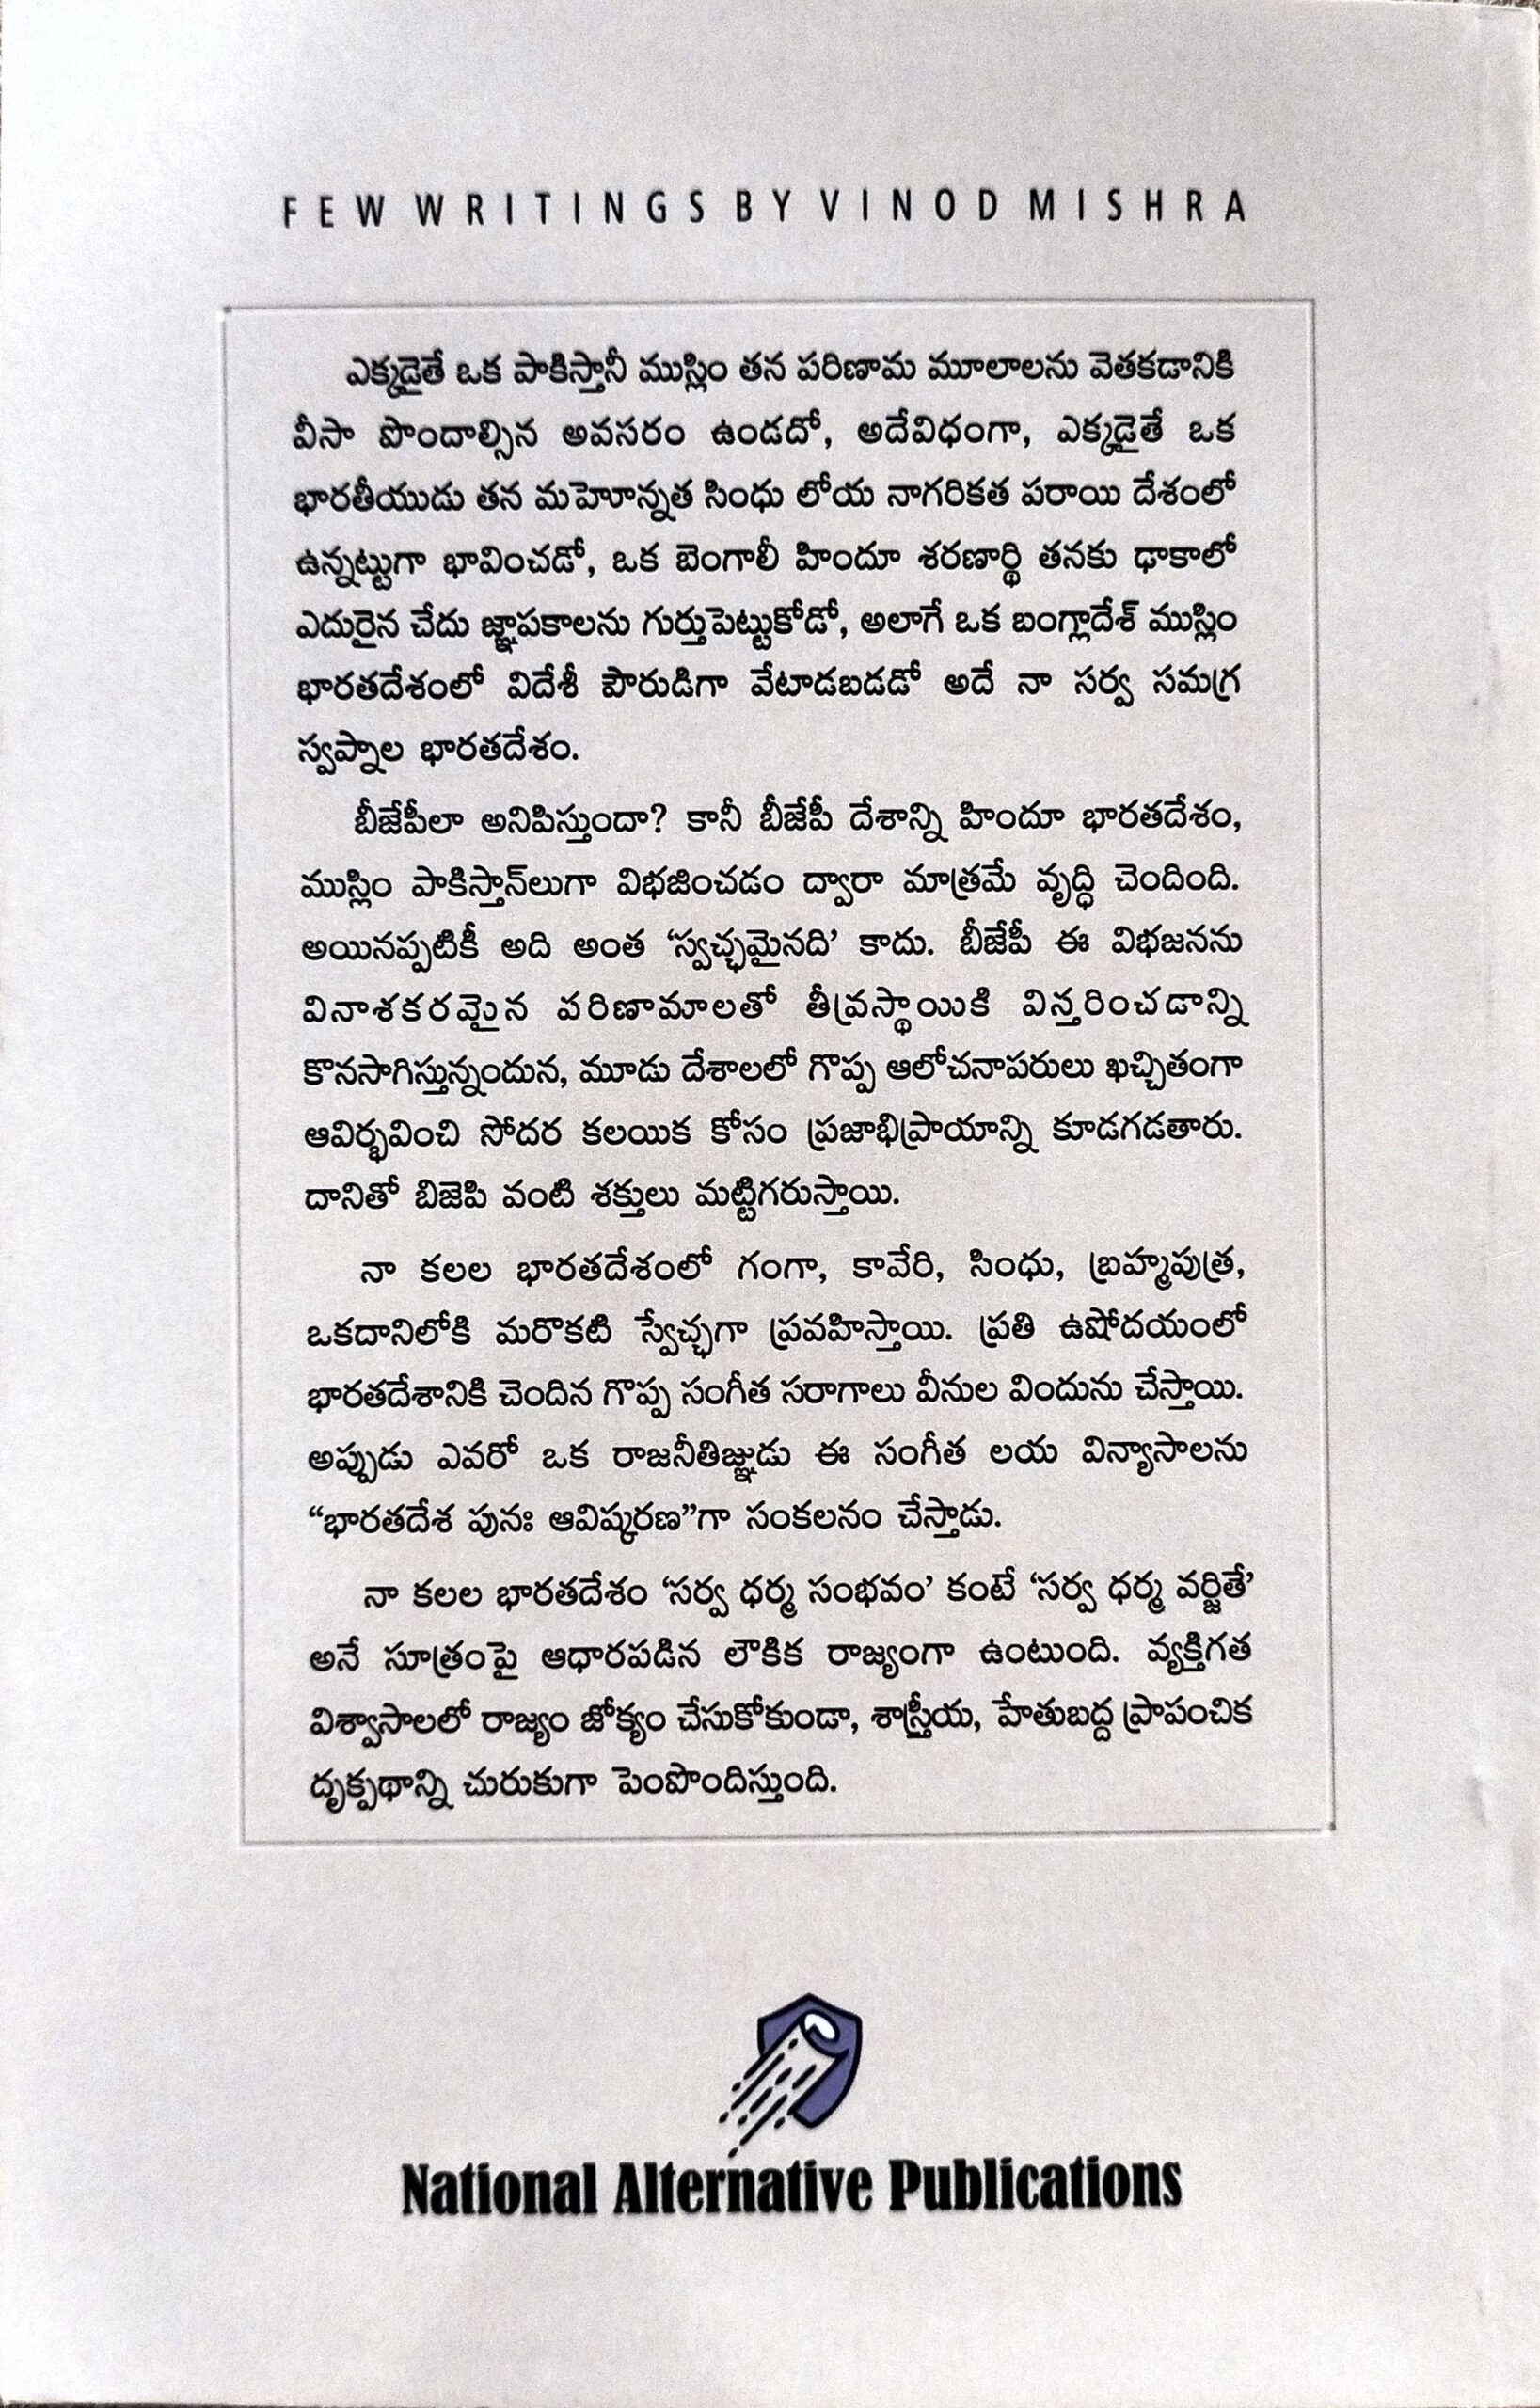 FEW WRITINGS BY VINOD MISHRA
ఎక్కడైతే ఒక పాకిస్తానీ ముస్లిం తన పరిణామ మూలాలను వెతకడానికి
వీసా పొందాల్సిన అవసరం ఉండదో, అదేవిధంగా, ఎక్కడైతే ఒక
భారతీయుడు తన మహోన్నత సింధు లోయ నాగరికత పరాయి దేశంలో
ఉన్నట్టుగా భావించడో, ఒక బెంగాలీ హిందూ శరణార్థి తనకు ఢాకాలో
ఎదురైన చేదు జ్ఞాపకాలను గుర్తుపెట్టుకోడో, అలాగే ఒక బంగ్లాదేశ్ ముస్లిం
భారతదేశంలో విదేశీ పౌరుడిగా వేటాడబడడో అదే నా సర్వ సమగ్ర
స్వప్నాల భారతదేశం.
బీజేపీలా అనిపిస్తుందా? కానీ బీజేపీ దేశాన్ని హిందూ భారతదేశం,
ముస్లిం పాకిస్తాన్‌లుగా విభజించడం ద్వారా మాత్రమే వృద్ధి చెందింది.
అయినప్పటికీ అది అంత ‘స్వచ్ఛమైనది’ కాదు. బీజేపీ ఈ విభజనను
వినాశకరమైన పరిణామాలతో తీవ్రస్థాయికి విస్తరించడాన్ని
కొనసాగిస్తున్నందున, మూడు దేశాలలో గొప్ప ఆలోచనాపరులు ఖచ్చితంగా
ఆవిర్భవించి సోదర కలయిక కోసం ప్రజాభిప్రాయాన్ని కూడగడతారు.
దానితో బిజెపి వంటి శక్తులు మట్టిగరుస్తాయి.
నా కలల భారతదేశంలో గంగా, కావేరి, సింధు, బ్రహ్మపుత్ర,
ఒకదానిలోకి మరొకటి స్వేచ్ఛగా ప్రవహిస్తాయి. ప్రతి ఉషోదయంలో
భారతదేశానికి చెందిన గొప్ప సంగీత సరాగాలు వీనుల విందును చేస్తాయి.
అప్పుడు ఎవరో ఒక రాజనీతిజ్ఞుడు ఈ సంగీత లయ విన్యాసాలను
“భారతదేశ పునః ఆవిష్కరణ”గా సంకలనం చేస్తాడు.
నా కలల భారతదేశం ‘సర్వ ధర్మ సంభవం’ కంటే ‘సర్వ ధర్మ వర్జితే’
అనే సూత్రంపై ఆధారపడిన లౌకిక రాజ్యంగా ఉంటుంది. వ్యక్తిగత
విశ్వాసాలలో రాజ్యం జోక్యం చేసుకోకుండా, శాస్త్రీయ, హేతుబద్ద ప్రాపంచిక
దృక్పథాన్ని చురుకుగా పెంపొందిస్తుంది.
National Alternative Publications